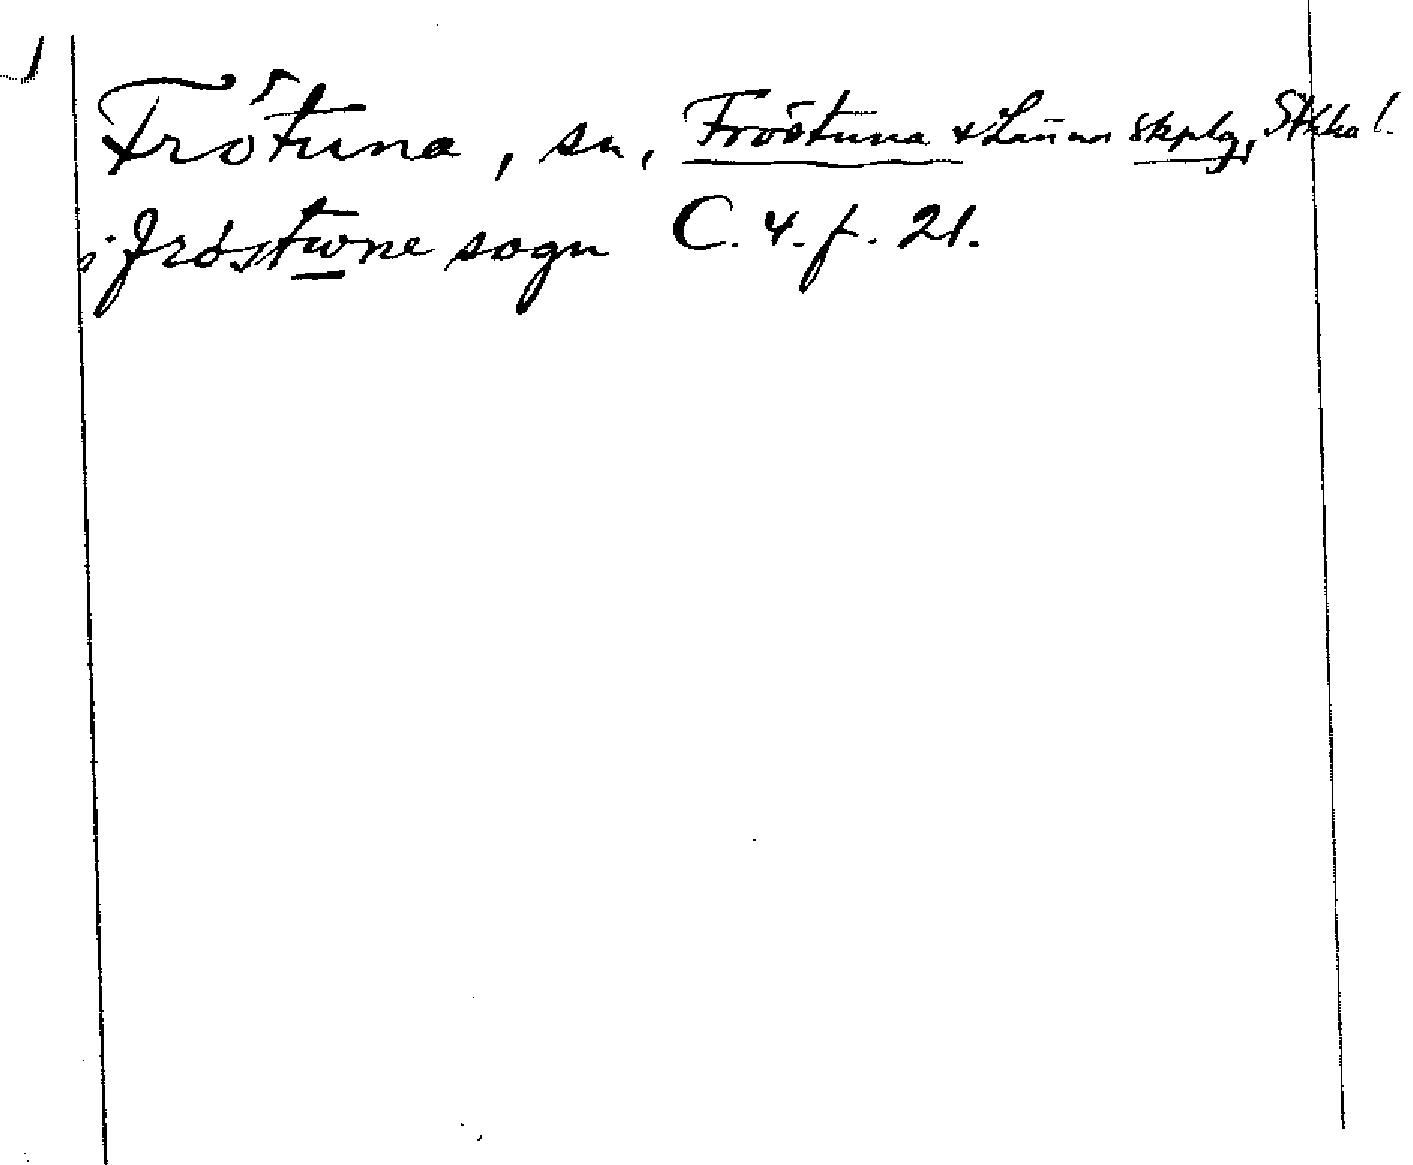 Frötuna, sn, Frötuna & Länna skplg, Sthlm l.
i fröstwne sogn C. 4. f. 21.